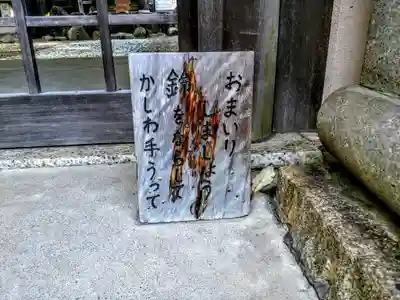 おまいり・・・
しましょう
鈴をならして
かしわ手うって